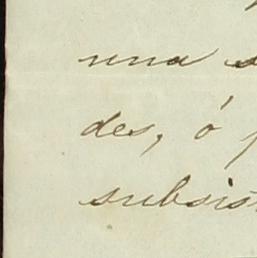 una
des, ó
subsis